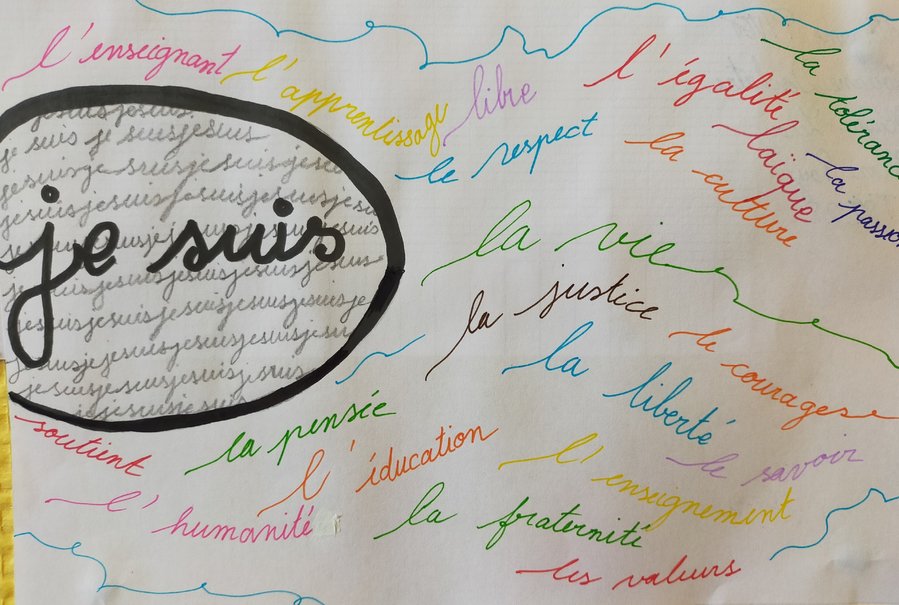 l'enseignant
l'apprentissage
libre
l'égalité
la tolérance
le respect
la culture
laïque
la passion
jesuisjesuis.
je suis je suisjesuis
jesuisje suisje suisjesu
jesuisjesuisjesuisjesuisjesuis
je suis
jesuisjesuisjesuisjesuis
jejesuisjesuisjesuis
la vie
la justice
le courage
la liberté
soutient
la pensée
l'éducation
le savoir
l'enseignement
l'humanité
la fraternité
les valeurs